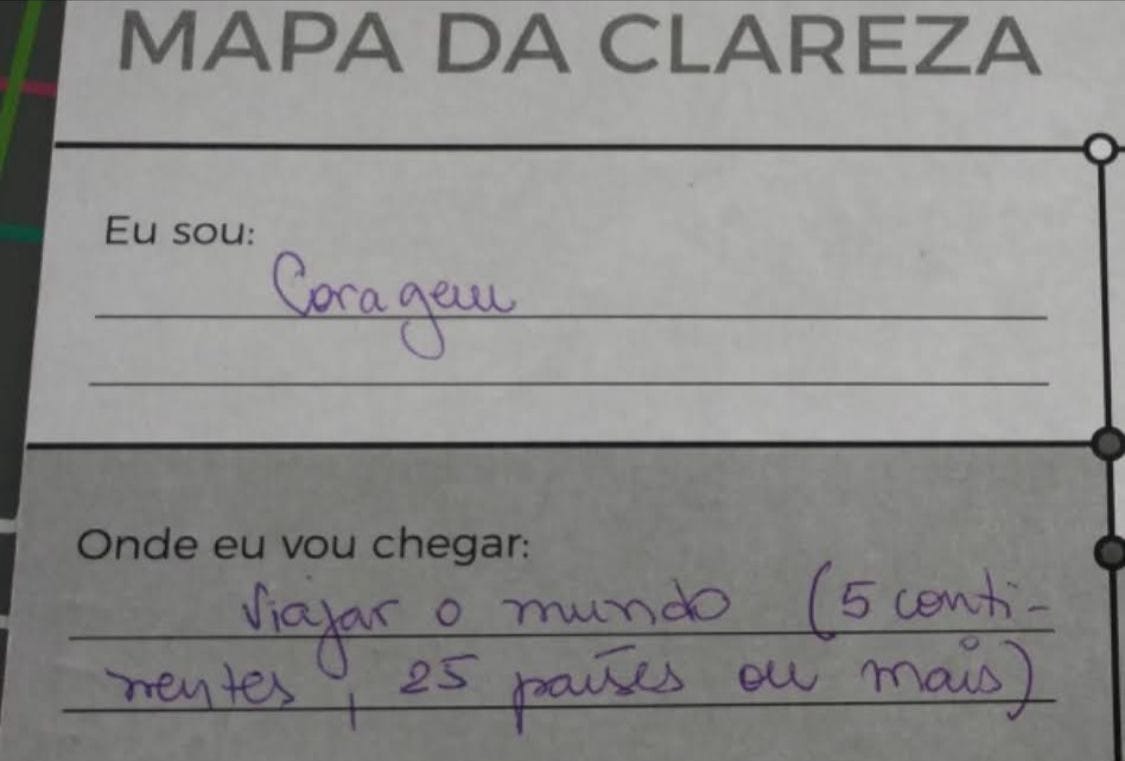 MAPA DA CLAREZA
Eu sou:
Coragem
Onde eu vou chegar:
Viajar o mundo (5 conti-
nentes, 25 países ou mais)